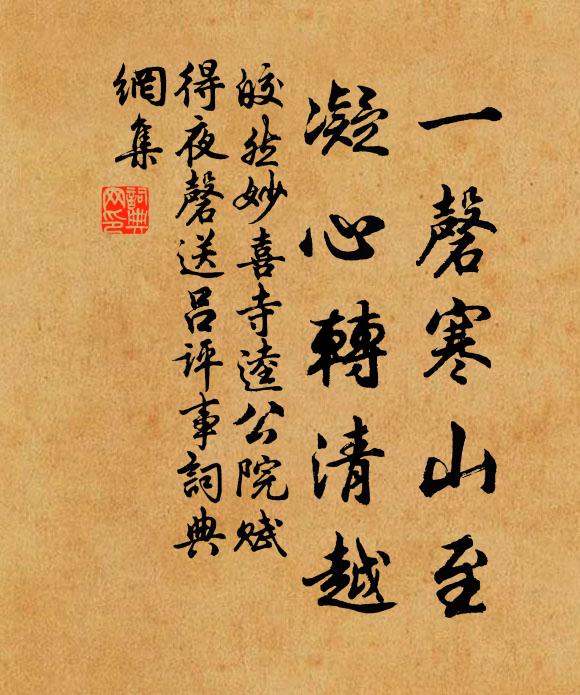 一磬寒山至
凝心轉清越
皎然妙喜寺逵公院賦
得夜磬送吕评事詞典
網集
詞典
网印